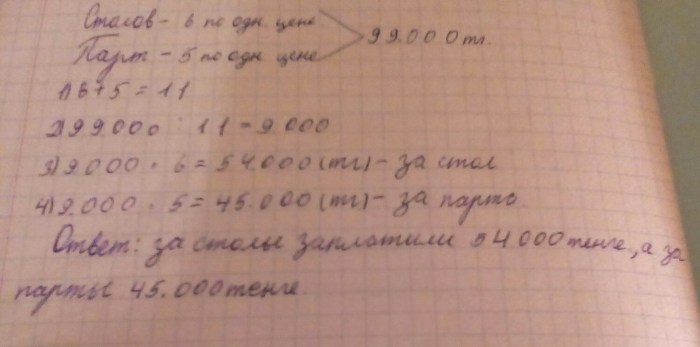 Столов - 6 по одн. цене
99.000тг.
Парт - 5 по одн. цене
1) 6+5 = 11
2) 99.000 : 11 = 9.000
3) 9.000 · 6 = 54.000 (тг) - за стол
4) 9.000 · 5 = 45.000 (тг) - за парто.
Ответ: за столы заплотили 54.000 тенге, а за
парты 45.000 тенге.